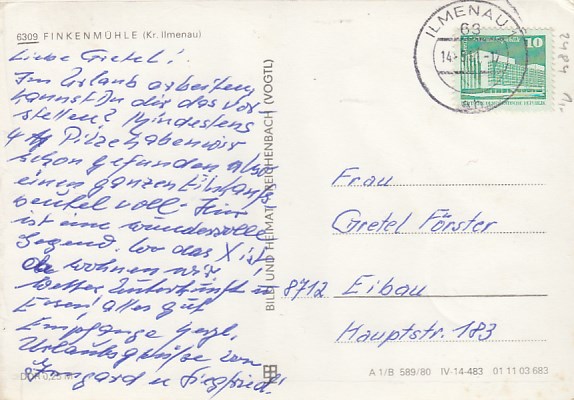 6309 FINKENMÜHLE (Kr. Ilmenau)
Liebe Gretel!
Im Urlaub arbeiten
kannst Du dir das vor
stellen? Mindestens
4 Pilze haben wir
schon gefunden also
einen ganzen Einkaufs
beutel voll. Hier
ist eine wundervolle
Gegend. Wo das X ist,
da wohnen wir,
Wetter Unterkunft u
Essen alles gut
Empfange herzl.
Urlaubsgrüße von
Irmgard u Siegfried!
DDR 0,25 M
BILD UND HEIMAT REICHENBACH (VOGTL)
ILMENAU 1
63
14.
10
Frau
Gretel Förster
8712 Eibau
Hauptstr. 183
A 1/B 589/80 IV-14-483 01 11 03 683
2484